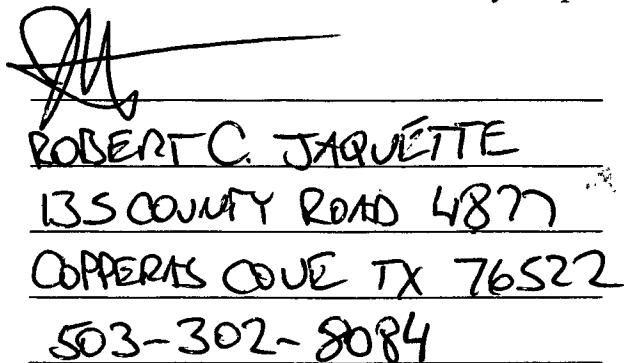 ROBERT C. JAQUETTE
135 COUNTY ROAD 4877
COPPERAS COVE TX 76522
503-302-8084